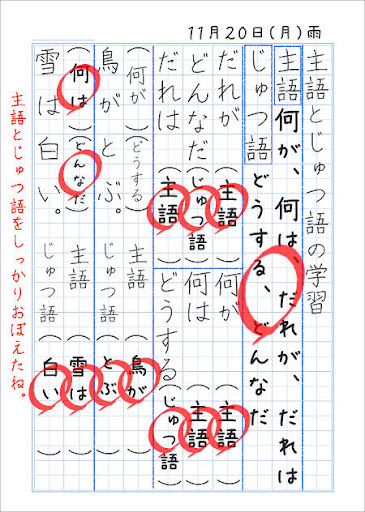 11月20日(月)雨
主語とじゅつ語の学習
主語 何が、何は、だれが、だれは
じゅつ語 どうする、どんなだ
だれが(主語)
どんなだ(じゅつ語)
だれは(主語)
何が(主語)
何は(主語)
どうする(じゅつ語)
(何が)(どうする) 主語(鳥が)
鳥がとぶ。 じゅつ語(とぶ)
(何は)(どんなだ) 主語(雪は)
雪は白い。 じゅつ語(白い)
主語とじゅつ語をしっかりおぼえたね。